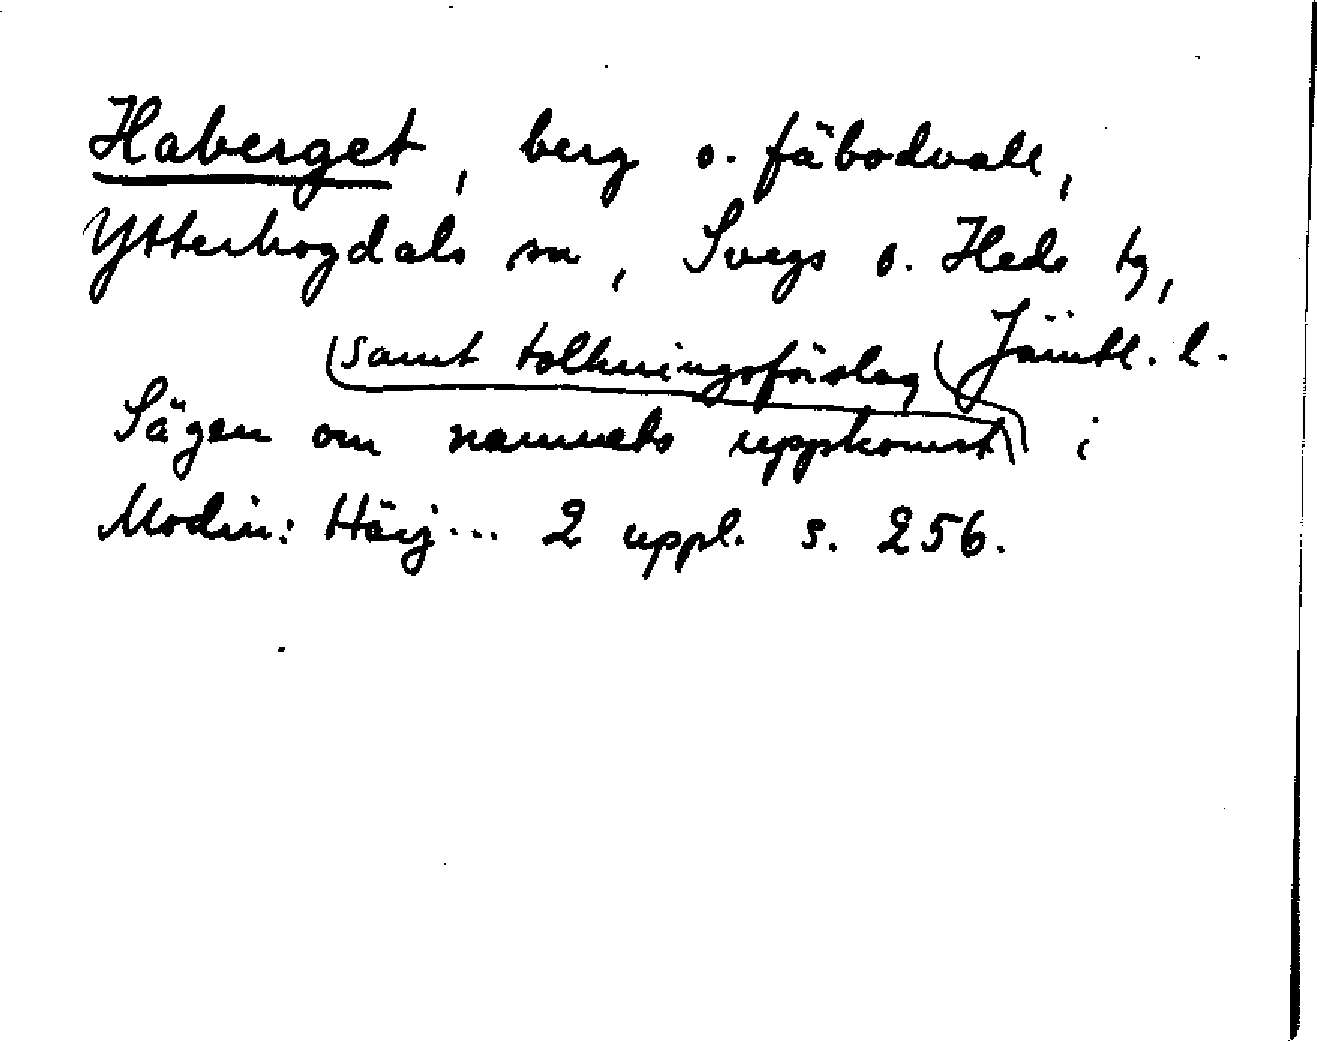 Haberget, berg o. fäbodvall,
Ytterhogdals sn, Svegs o. Heds tg,
Jämtl. l.
samt tolkningsförslag
Sägen om namnets uppkomst i
Modin: Härj... 2 uppl. s. 256.